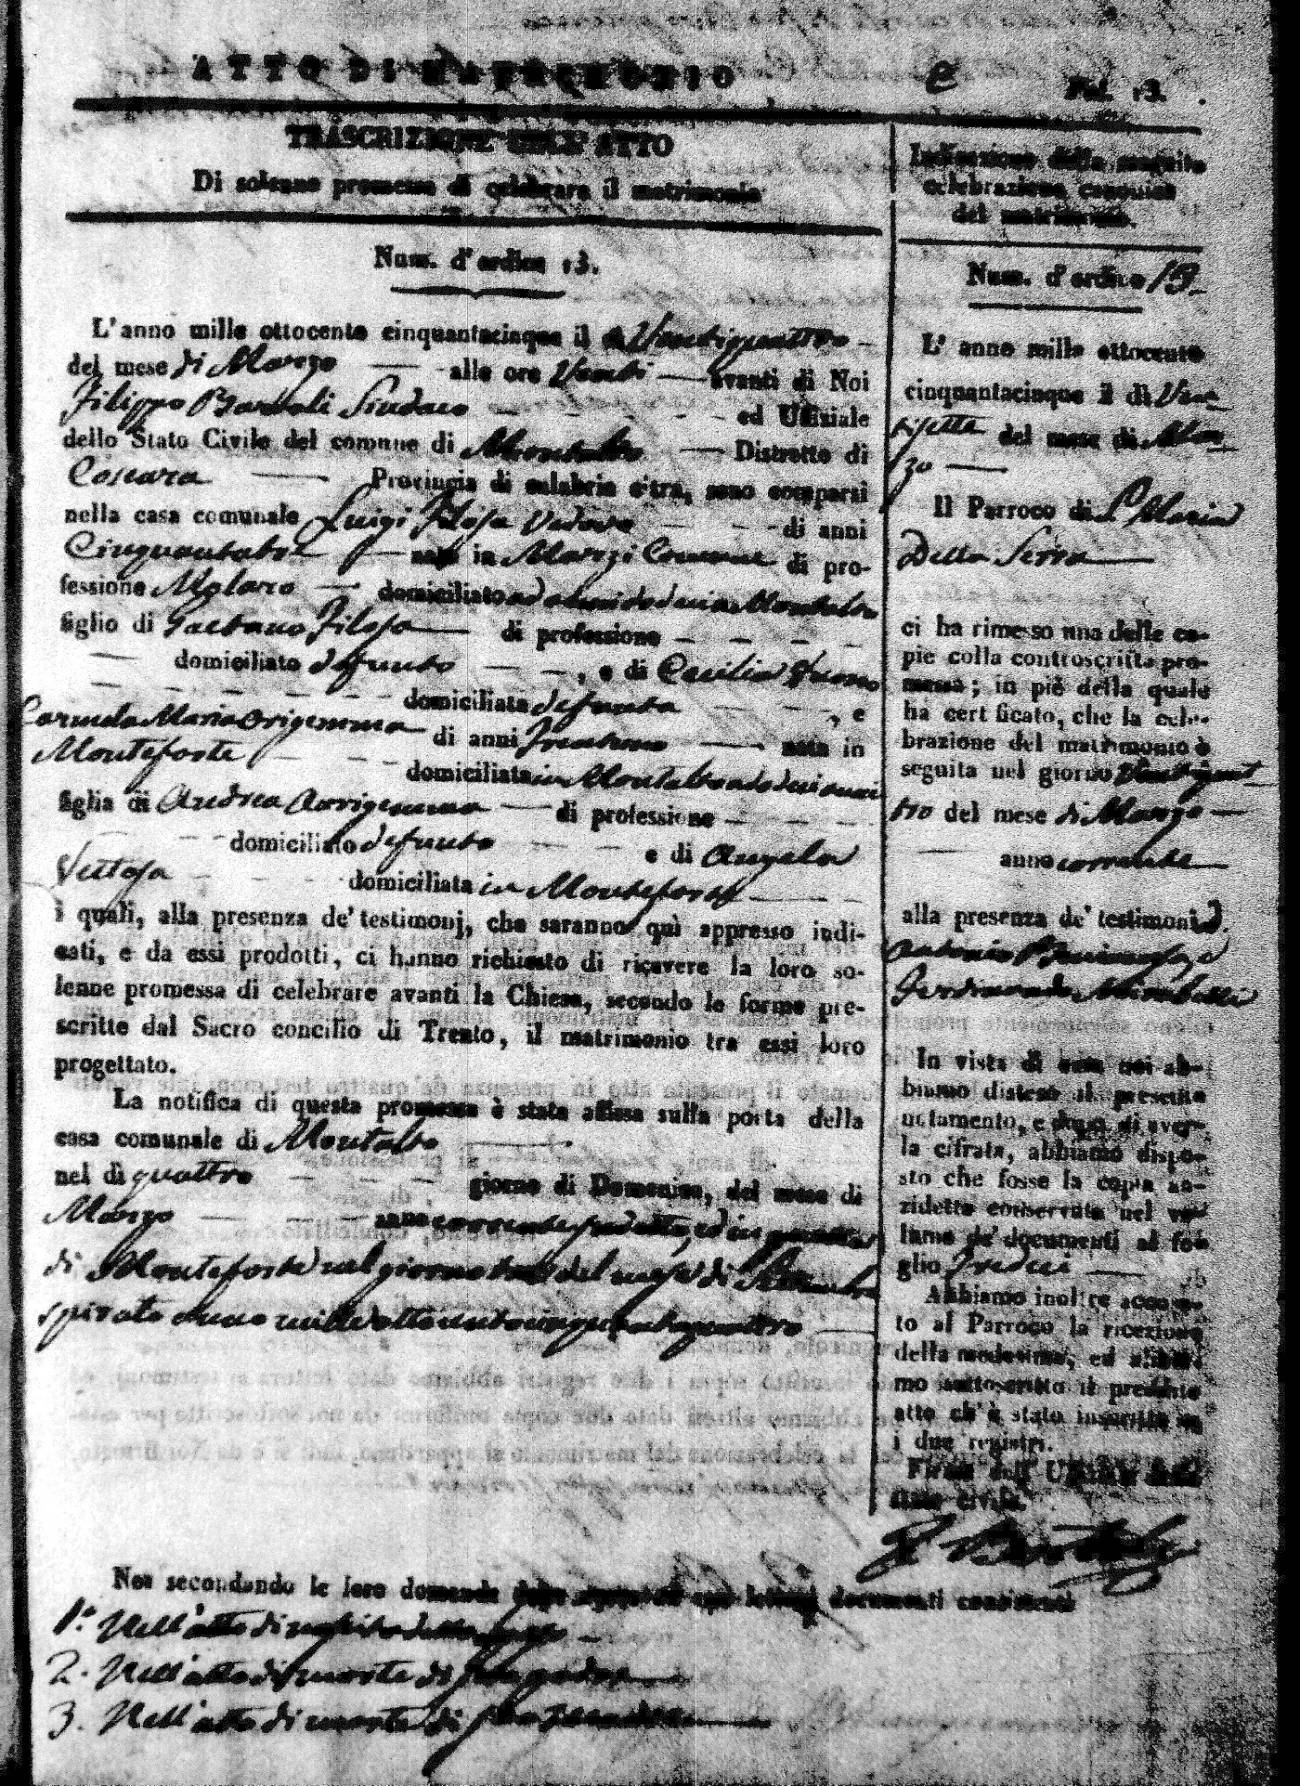 ATTO DI MATRIMONIO
Fol. 13.
TRASCRIZIONE DELL' ATTO
Di solenne promessa di celebrare il matrimonio
Num. d'ordine 13.
L'anno mille ottocento cinquantacinque il dì Ventiquattro
del mese di Marzo — alle ore Venti — avanti di Noi
Filippo Bartoli Sindaco ed Uffiziale
dello Stato Civile del comune di Montalto — Distretto di
Cosenza — Provincia di calabria citra, sono comparsi
nella casa comunale Luigi Filosa Vedovo di anni
Cinquantatre nato in Marzi Comune di pro-
fessione Molaro — domiciliato in Montalto
figlio di Gaetano Filosa di professione
domiciliato defunto , e di Cecilia
domiciliata defunta , e
Carmela Maria Origemma di anni Trentuno — nata in
Monteforte domiciliata in Montalto
figlia di Andrea Arrigemma — di professione
domiciliato defunto e di Angela
Vetosa domiciliata in Monteforte
i quali, alla presenza de' testimonj, che saranno quì appresso indi-
cati, e da essi prodotti, ci hanno richiesto di ricevere la loro so-
lenne promessa di celebrare avanti la Chiesa, secondo le forme pre-
scritte dal Sacro concilio di Trento, il matrimonio tra essi loro
progettato.
La notifica di questa promessa è stata affissa sulla porta della
casa comunale di Montalto
nel dì quattro giorno di Domenica, del mese di
Marzo anno corrente ed in
di Monteforte nel giorno tre del mese di
spirato anno mille ottocento cinquantaquattro
Noi secondando le loro domande documenti consistenti
1.° Nell'atto di nascita dello sposo
2. Nell'atto di morte di suo padre
3. Nell'atto di morte di sua
Indicazione della seguita
celebrazione canonica
del matrimonio.
Num. d'ordine 13
L' anno mille ottocento
cinquantacinque il dì Ven-
tisette del mese di Mar-
zo —
Il Parroco di S. Maria
Della Serra
ci ha rimesso una delle co-
pie colla controscritta pro-
messa; in piè della quale
ha certificato, che la cele-
brazione del matrimonio è
seguita nel giorno Ventiquat-
tro del mese di Marzo —
anno corrente
alla presenza de' testimoni
Antonio e
Ferdinando Mirabelli
In vista di essa noi ab-
biamo disteso il presente
notamento, e dopo di aver-
la cifrata, abbiamo dispo-
sto che fosse la copia an-
zidetta conservata nel vo-
lume de' documenti al fo-
glio Tredici
Abbiamo inoltre accusa-
to al Parroco la ricezione
della medesima, ed abbia-
mo sottoscritto il presente
atto ch'è stato inscritto su
i due registri.
Firma dell' Uffiziale dello
stato civile.